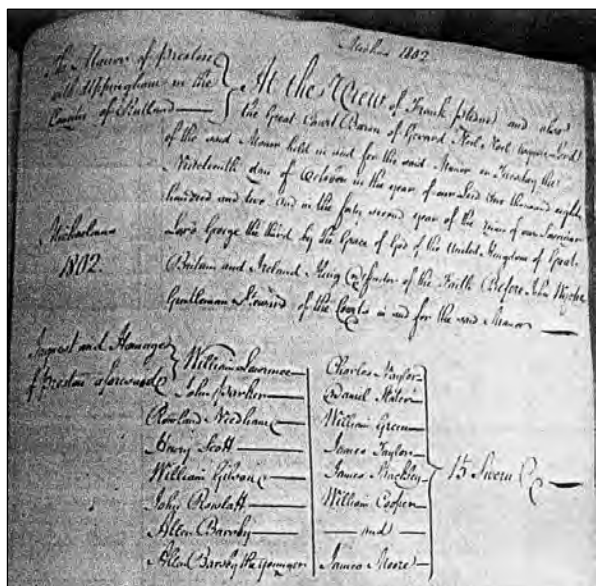 Michs 1802
The Manor of Preston
with Uppingham in the
County of Rutland
At the View of Frank pledge and also
the Great Court Baron of Gerard Noel Noel Esquire Lord
of the said Manor held in and for the said Manor on Tuesday the
Nineteenth day of October in the year of our Lord One thousand eight
hundred and two and in the forty second year of the reign of our Sovereign
Lord George the third by the Grace of God of the United Kingdom of Great
Britain and Ireland King Defender of the Faith Before John
Gentleman Steward of the Courts in and for the said Manor
Michaelmas
1802.
Inquest and Homage
of Preston aforesaid
William Lawrance
John Parker
Rowland Needham
Henry Scott
William Gibson
John Rowlatt
Allen Barnby
Allen Barnby the younger
Charles Naylor
Daniel
William Green
James Naylor
James Stackley
William Cooper
and
James Moore
15 Sworn